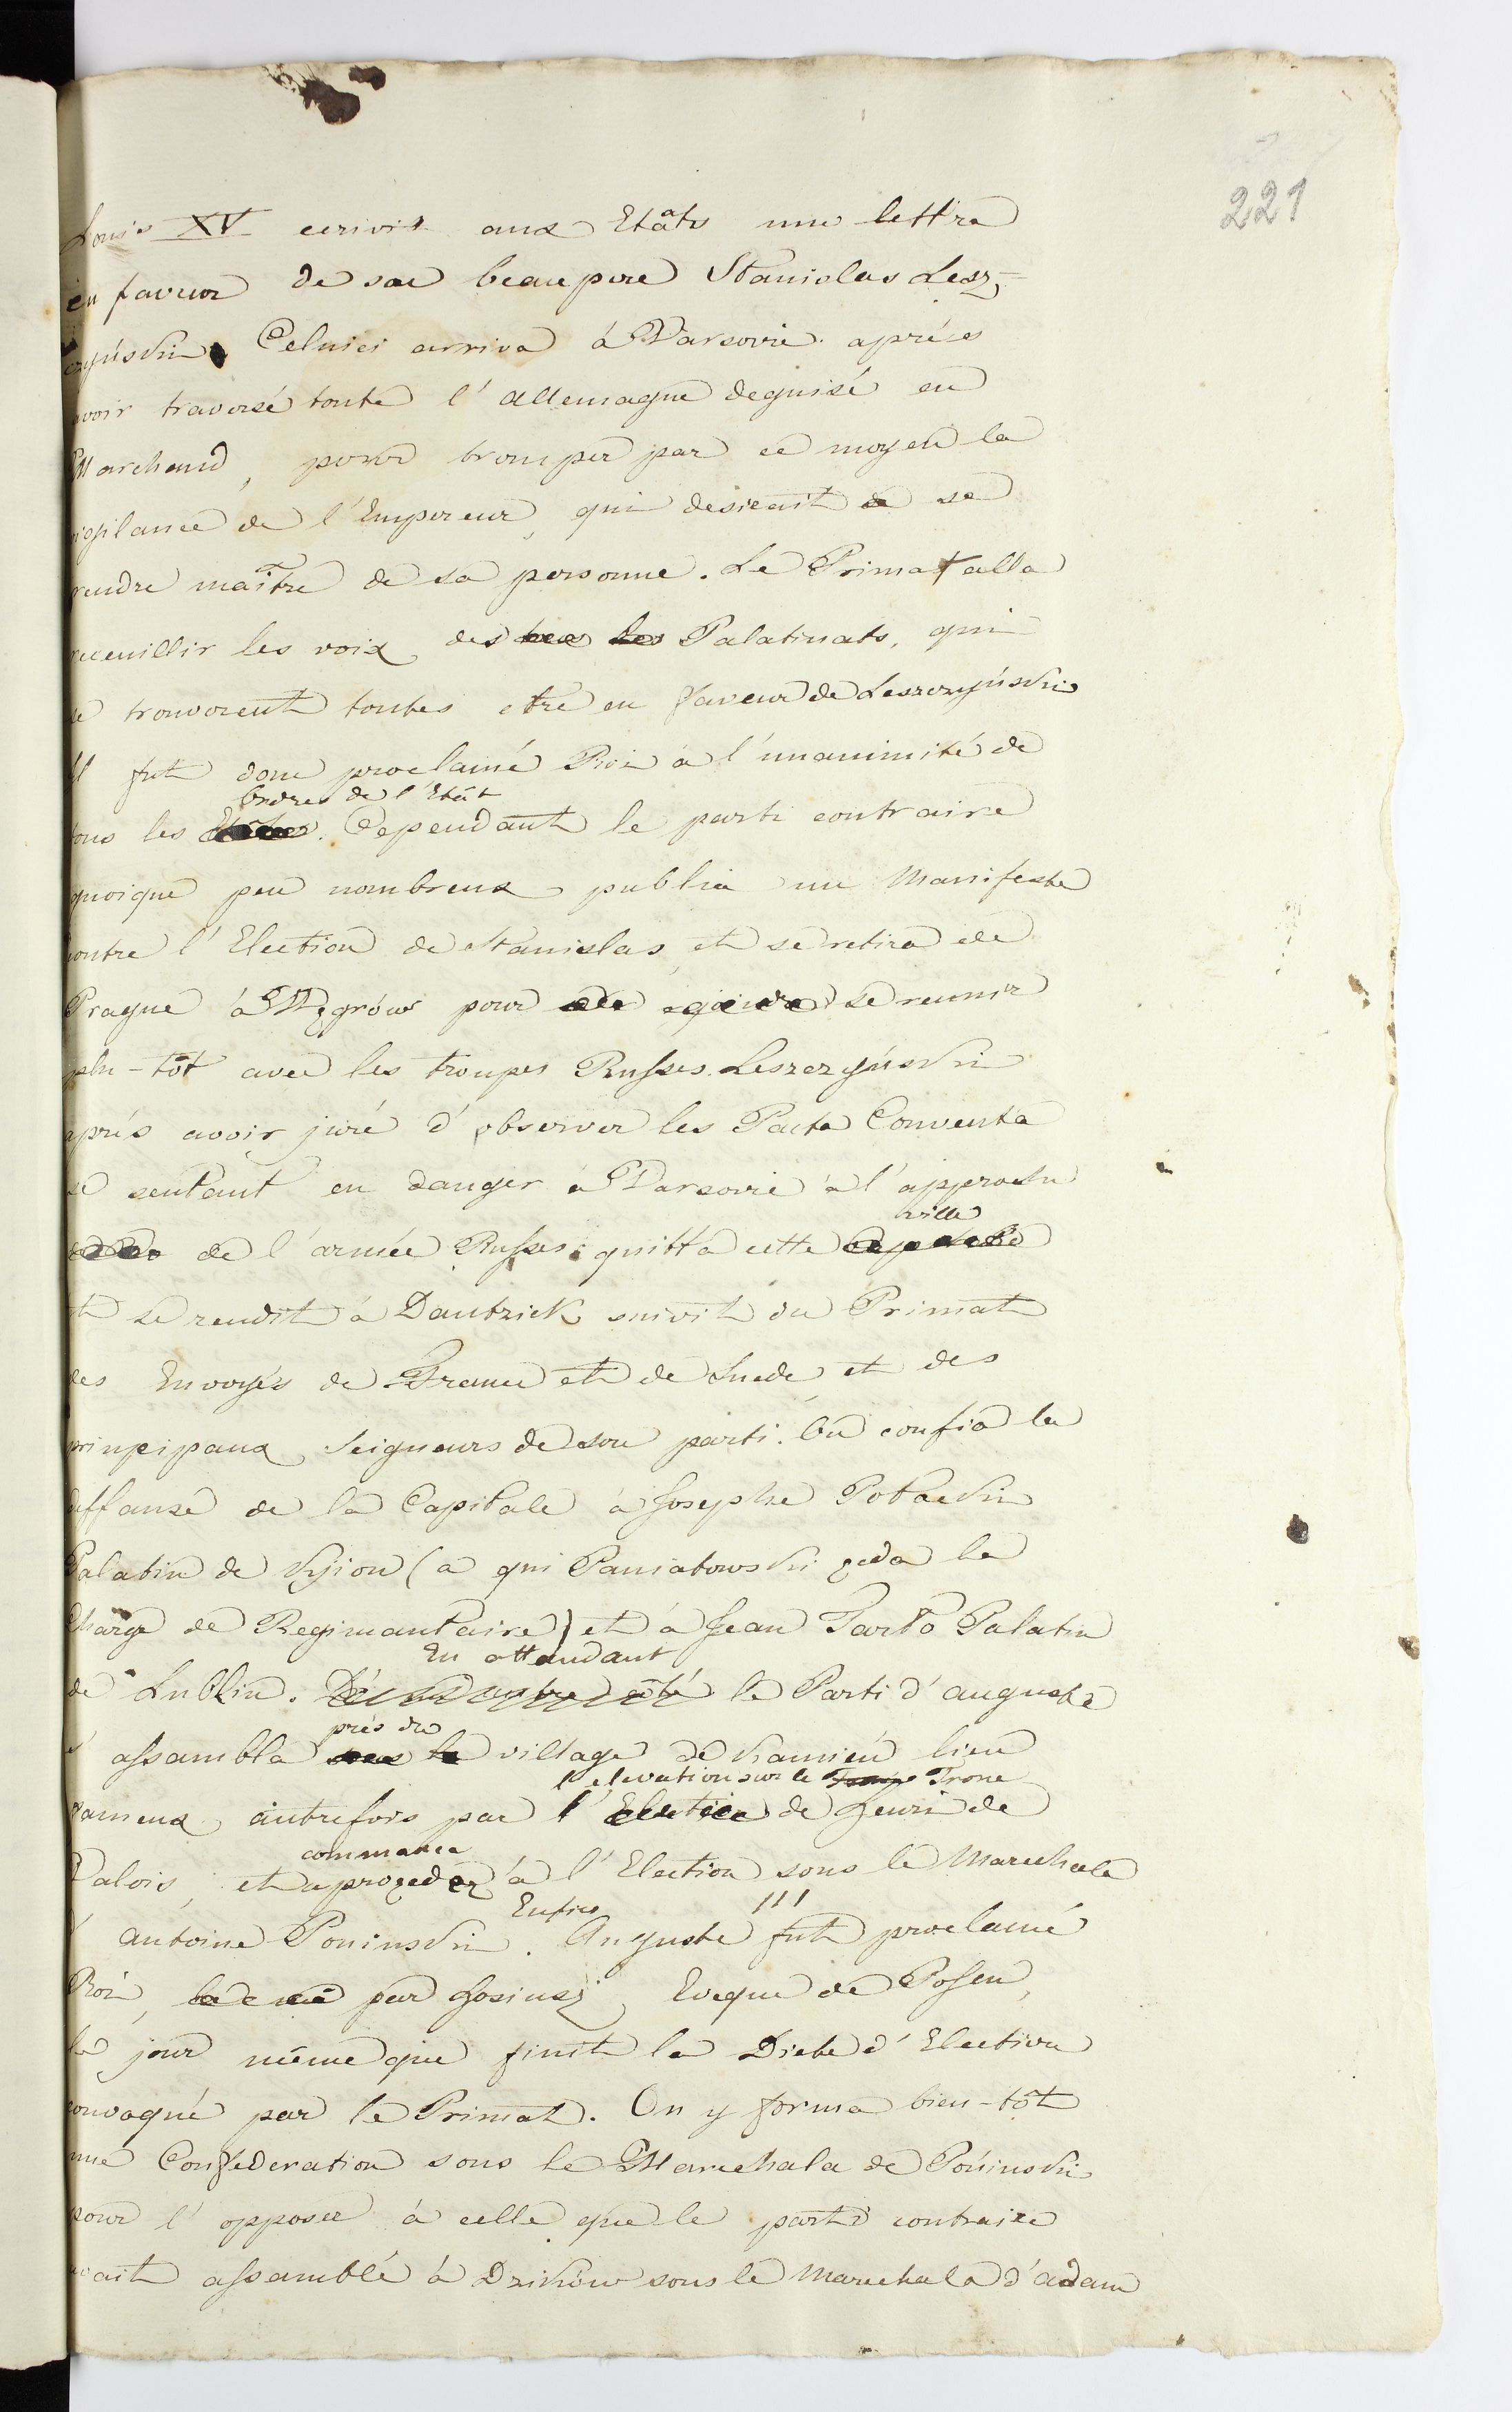 221
Louis XV ecrivit aux Etâts une lettre
en faveur de son beaupere Stanislas Lesz-
czyński. Celuici arriva à Varsovie après
avoir traversé toute l'Allemagne deguisé en
Marchand, pour tromper par ce moyen la
vigilance de l'Empereur, qui desirait de se
rendre maître de sa personne. Le Primat alla
receuillir les voix des Palatinats, qui
se trouverent toutes etre en faveur de Leszczyński
Il fut donc proclamé Roi à l'unanimité de
Ordres de l'Etât
tous les Cependant le parti contraire
quoique peu nombreux publia un Manifeste
contre l'Election de Stanislas, et se retira de
Prague à Węgrów pour se reunir
plu-tôt avec les troupes Russes. Leszczyński
après avoir juré d'observer les Pacta Conventa
se sentant en danger à Varsovie à l'approche
ville
de l'armée Russes quitta cette
et se rendit à Dantzick suivit du Primat
des Envoyés de France et de Suede et des
principaux Seigneurs de son parti. On confia la
deffanse de la Capitale à Josephe Potocki
Palatin de Kyiow (a qui Paniatowski ceda la
Charge de Regimantaire) et à Jean Tarło Palatin
En attandant
de Lublin. Dé un autre côté le Parti d'auguste
près du
s'assambla village de Kamień lieu
l'elevation sur le Trone
fameux autrefois par l'Election de Henri de
commança
Valois, et a proceder à l'Election sous le Marechala
Enfin III
d'Antoine Poninski. Auguste fut proclamé
Roi, par Hosiusz, Eveque de Posen,
le jour même que finit la Diete d'Election
convoqué par le Primat. On y forma bien-tôt
une Confederation sous le Marechala de Poninski
pour l'opposer à celle que le parti contraire
avait assamblé à Dzików sous le Marechala d'adam